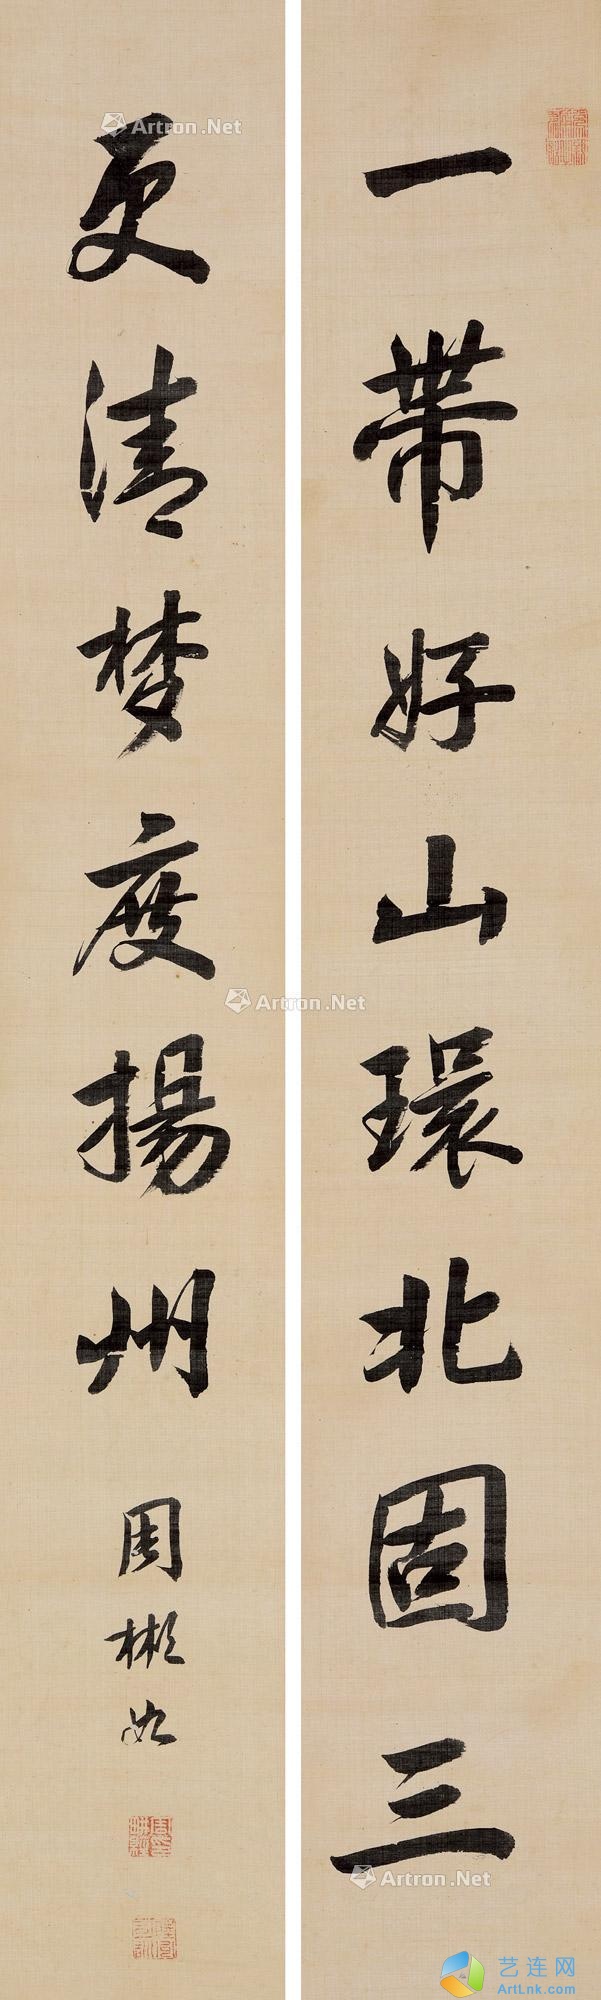 一帶好山環北固三
更清梦度揚州
周彬如
Artron.Net
Artron.Net
Artron.Net
艺连网
ArtLnk.com